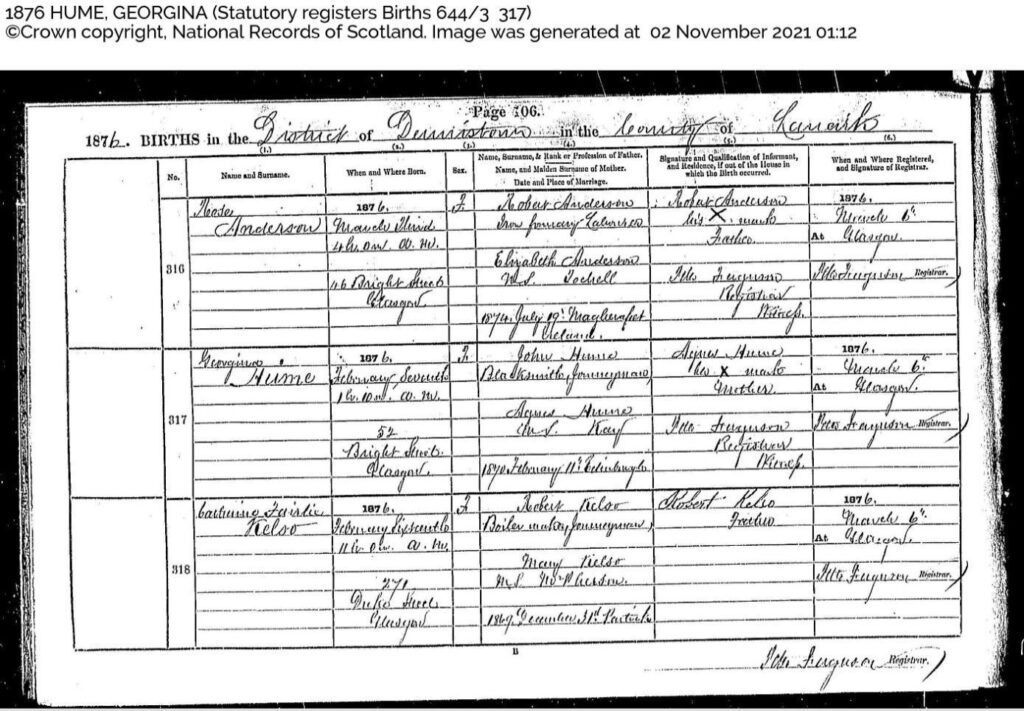 1876 HUME, GEORGINA (Statutory registers Births 644/3 317)
©Crown copyright, National Records of Scotland. Image was generated at 02 November 2021 01:12
Page 106.
1876. BIRTHS in the District of Dennistoun in the County of Lanark
(1.) (2.) (3.) (4.) (5.) (6.)
No.
Name and Surname.
When and Where Born.
Sex.
Name, Surname, & Rank or Profession of Father.
Name, and Maiden Surname of Mother.
Date and Place of Marriage.
Signature and Qualification of Informant,
and Residence, if out of the House in
which the Birth occurred.
When and Where Registered,
and Signature of Registrar.
316
Anderson
1876.
March Third
4 h. 0 m. A. M.
46 Bright Street
Glasgow
F.
Robert Anderson
Iron foundry Labourer
Elizabeth Anderson
M.S.
1874, July 19th
Ireland.
Robert Anderson
his X mark
Father.
Ferguson
Registrar
Witness.
1876.
March 6th
At Glasgow.
Ferguson Registrar.
317
Georgina
Hume
1876.
February Seventh
1 h. 10 m. A. M.
52
Bright Street
Glasgow
F.
John Hume
Blacksmith, Journeyman,
Agnes Hume
M.S. Kay
1870, February 11th Edinburgh
Agnes Hume
her X mark
Mother.
Ferguson
Registrar
Witness.
1876.
March 6th
At Glasgow.
Ferguson Registrar.
318
Catherine Fairlie
Kelso
1876.
February Sixteenth
11 h. 0 m. A. M.
271
Duke Street
Glasgow
F.
Robert Kelso
Boiler maker, Journeyman,
Mary Kelso
M.S. McPherson.
1869, December 31st Partick
Robert Kelso
Father
1876.
March 6th
At Glasgow.
Ferguson Registrar.
B
Ferguson Registrar.